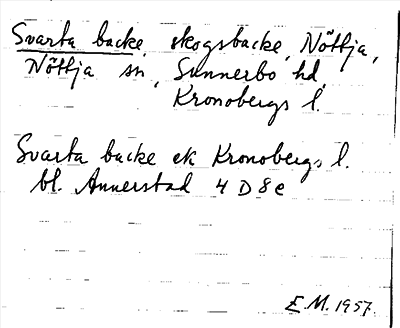 Svarta backe, skogsbacke, Nöttja,
Nöttja sn, Sunnerbo hd,
Kronobergs l.
Svarta backe ek Kronobergs l.
bl. Annerstad 4 D 8 e
E.M. 1957.